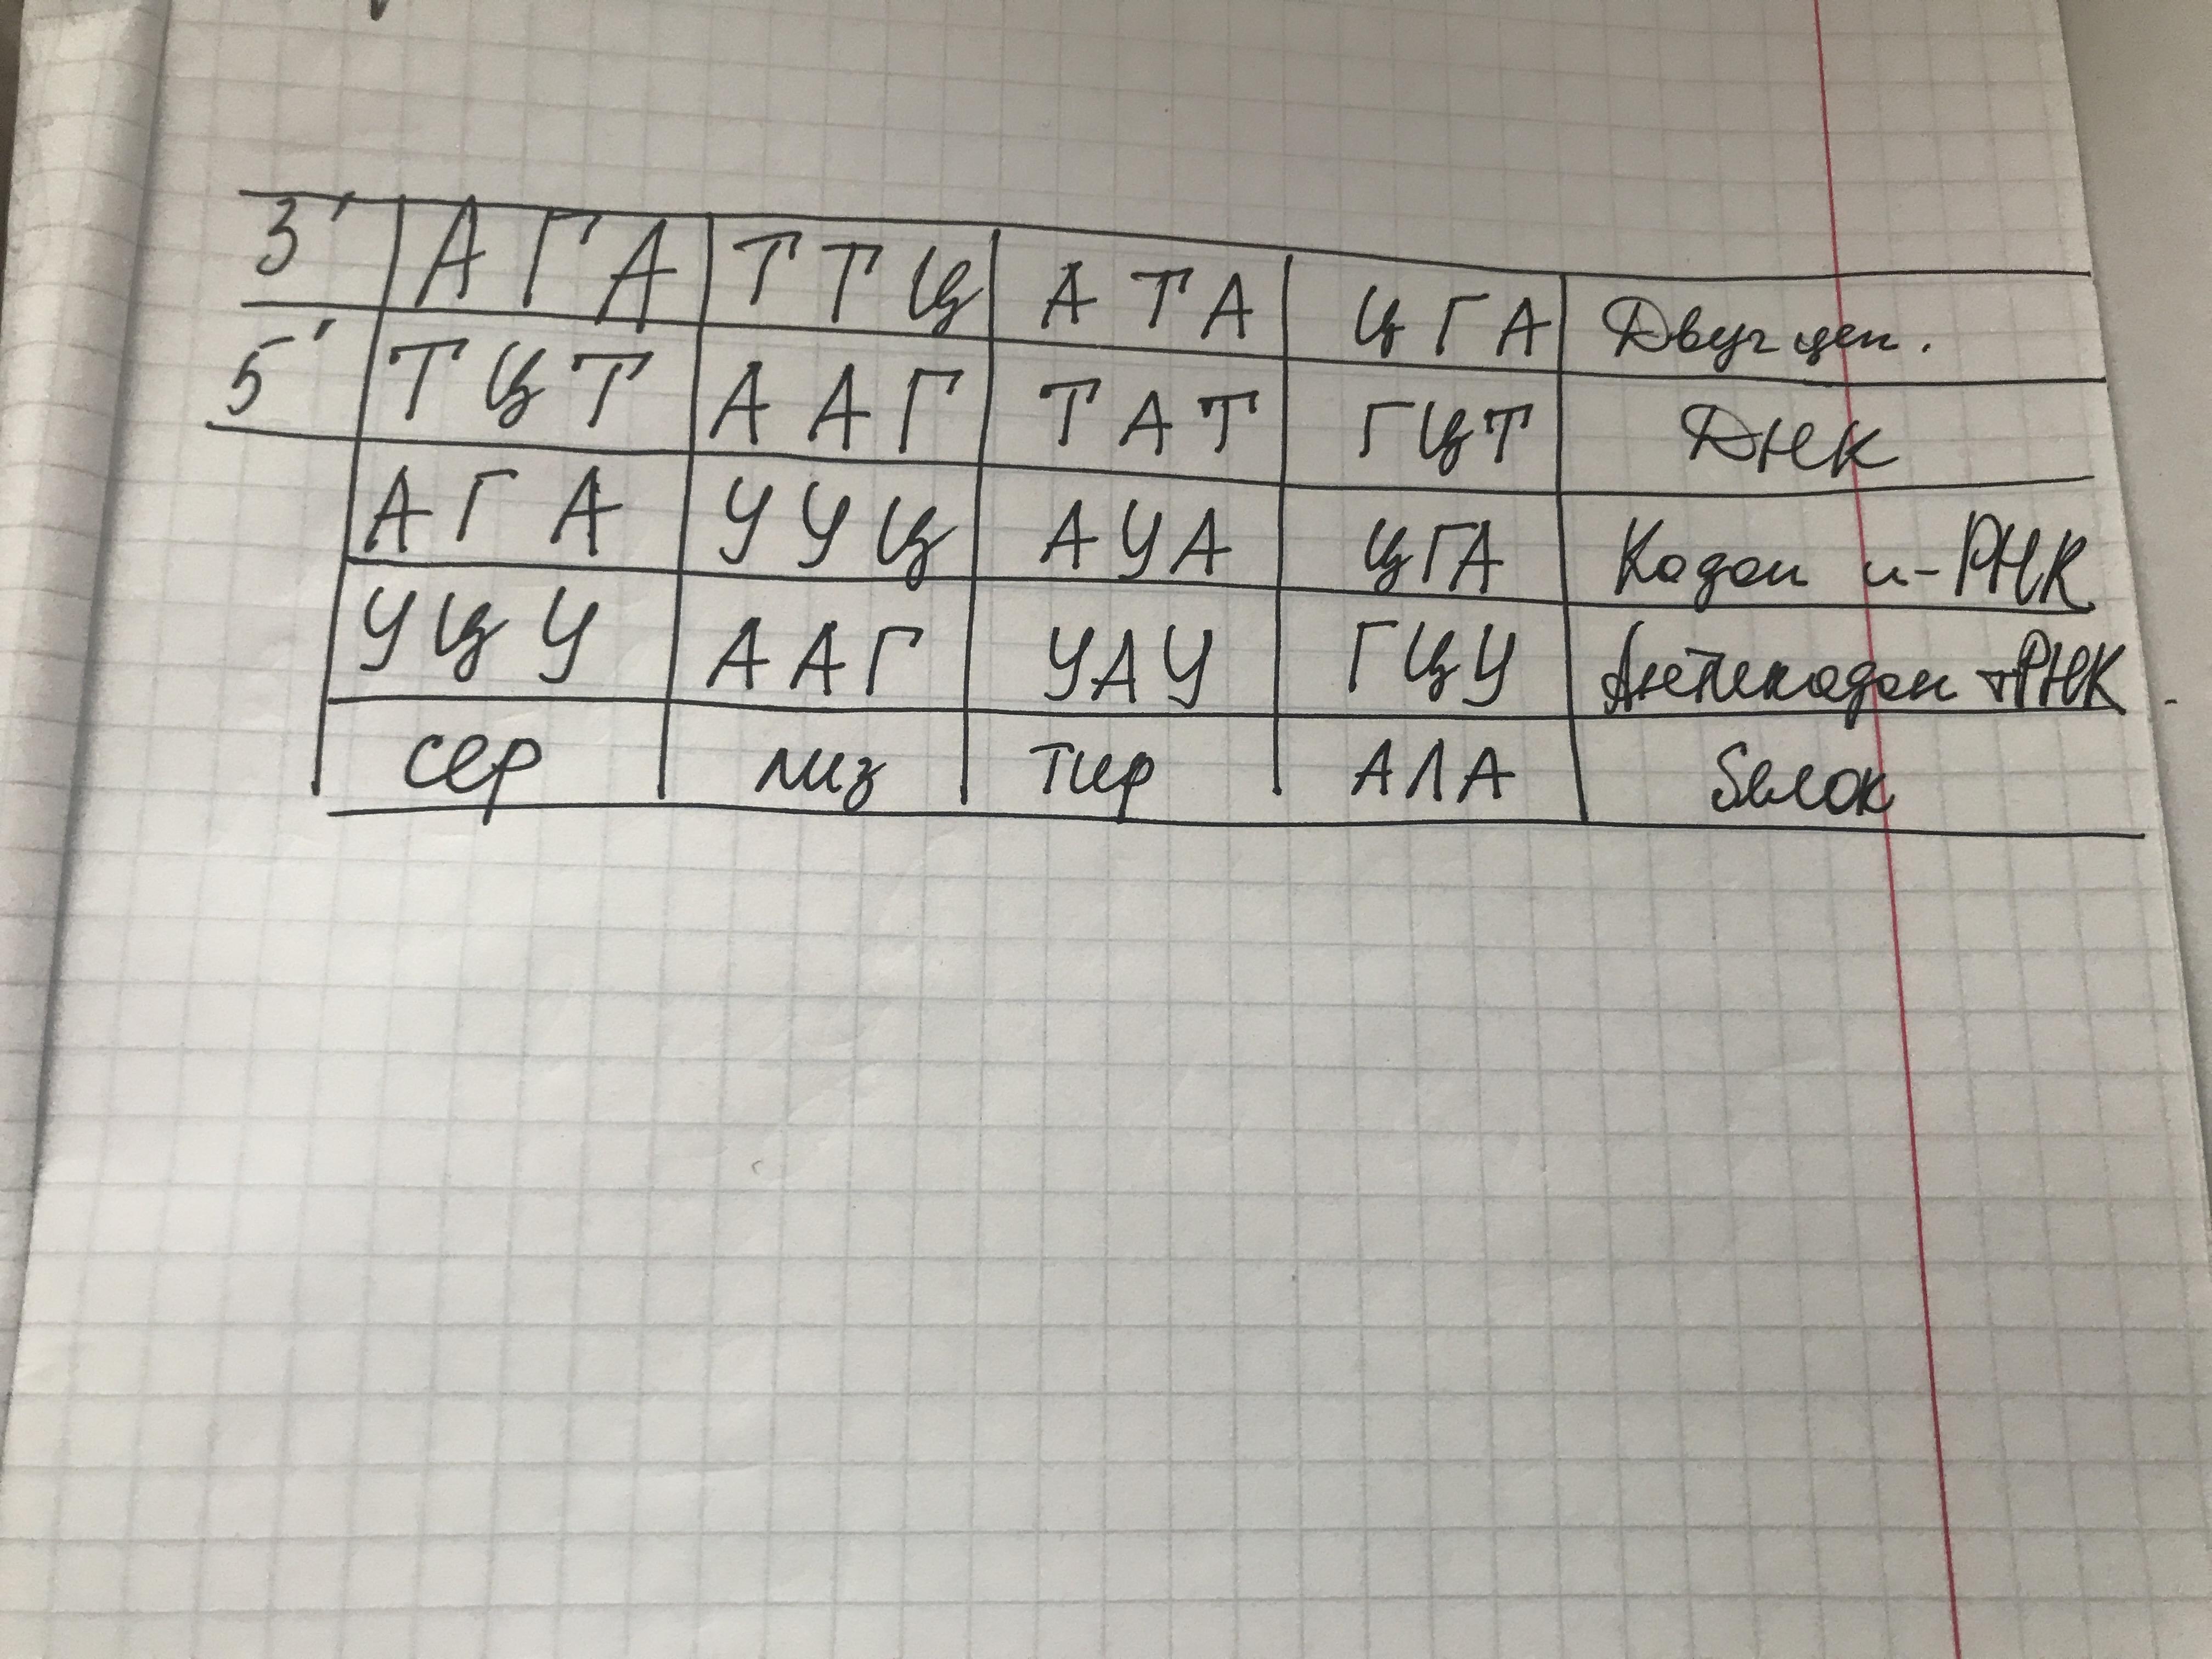 3' АГА ТТЦ АТА ЦГА Двуг цеп.
5' ТЦТ ААГ ТАТ ГЦТ ДНК
АГА УУЦ АУА ЦГА Кодон и-РНК
УЦУ ААГ УАУ ГЦУ Антикодон тРНК
сер лиз тир АЛА Белок